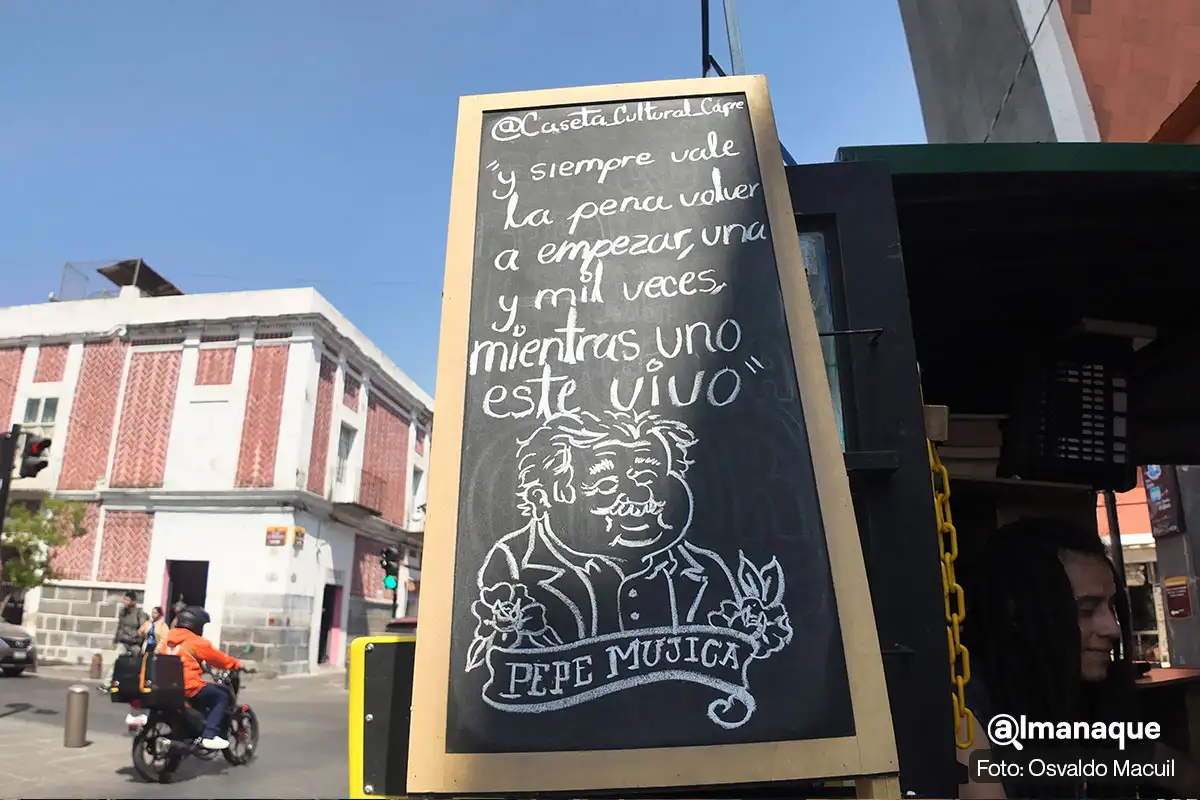 @Caseta_Cultural_Cafre
"y siempre vale
la pena volver
a empezar, una
y mil veces,
mientras uno
este vivo"
PEPE MUJICA
@lmanaque
Foto: Osvaldo Macuil